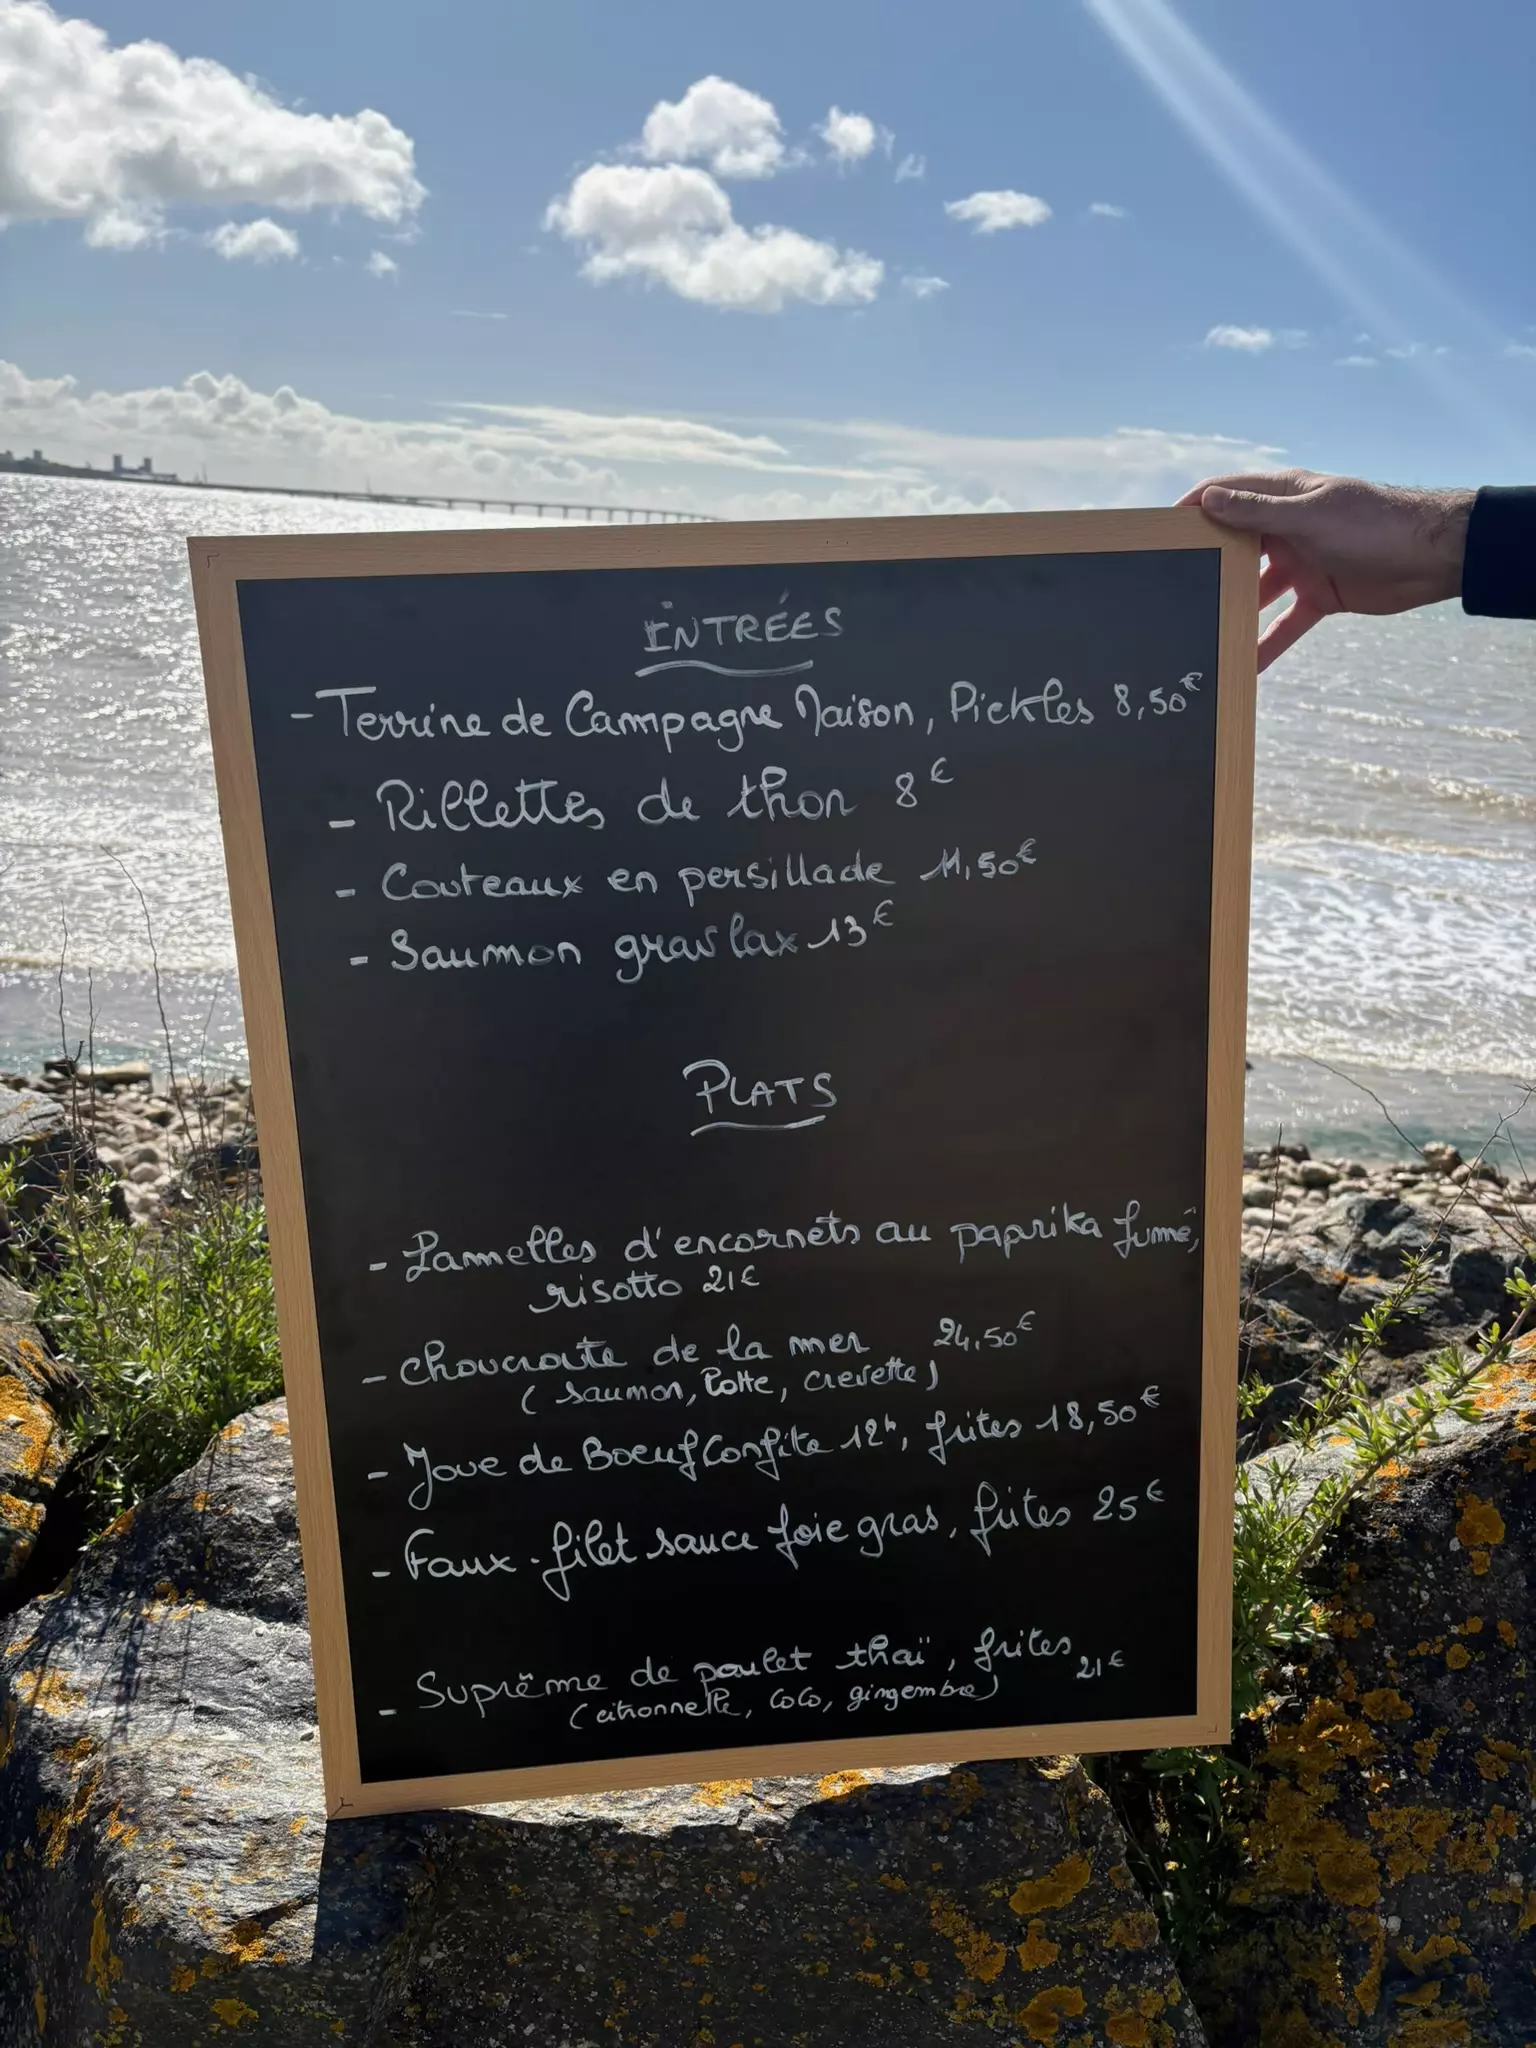 ENTRÉES
- Terrine de Campagne Maison, Pickles 8,50€
- Rillettes de thon 8€
- Couteaux en persillade 11,50€
- Saumon gravlax 13€
PLATS
- Lamelles d'encornets au paprika fumé,
risotto 21€
- Choucroute de la mer 24,50€
(saumon, lotte, crevette)
- Joue de Boeuf Confite 12h, frites 18,50€
- Faux-filet sauce foie gras, frites 25€
- Suprême de poulet thaï, frites 21€
(citronnelle, coco, gingembre)